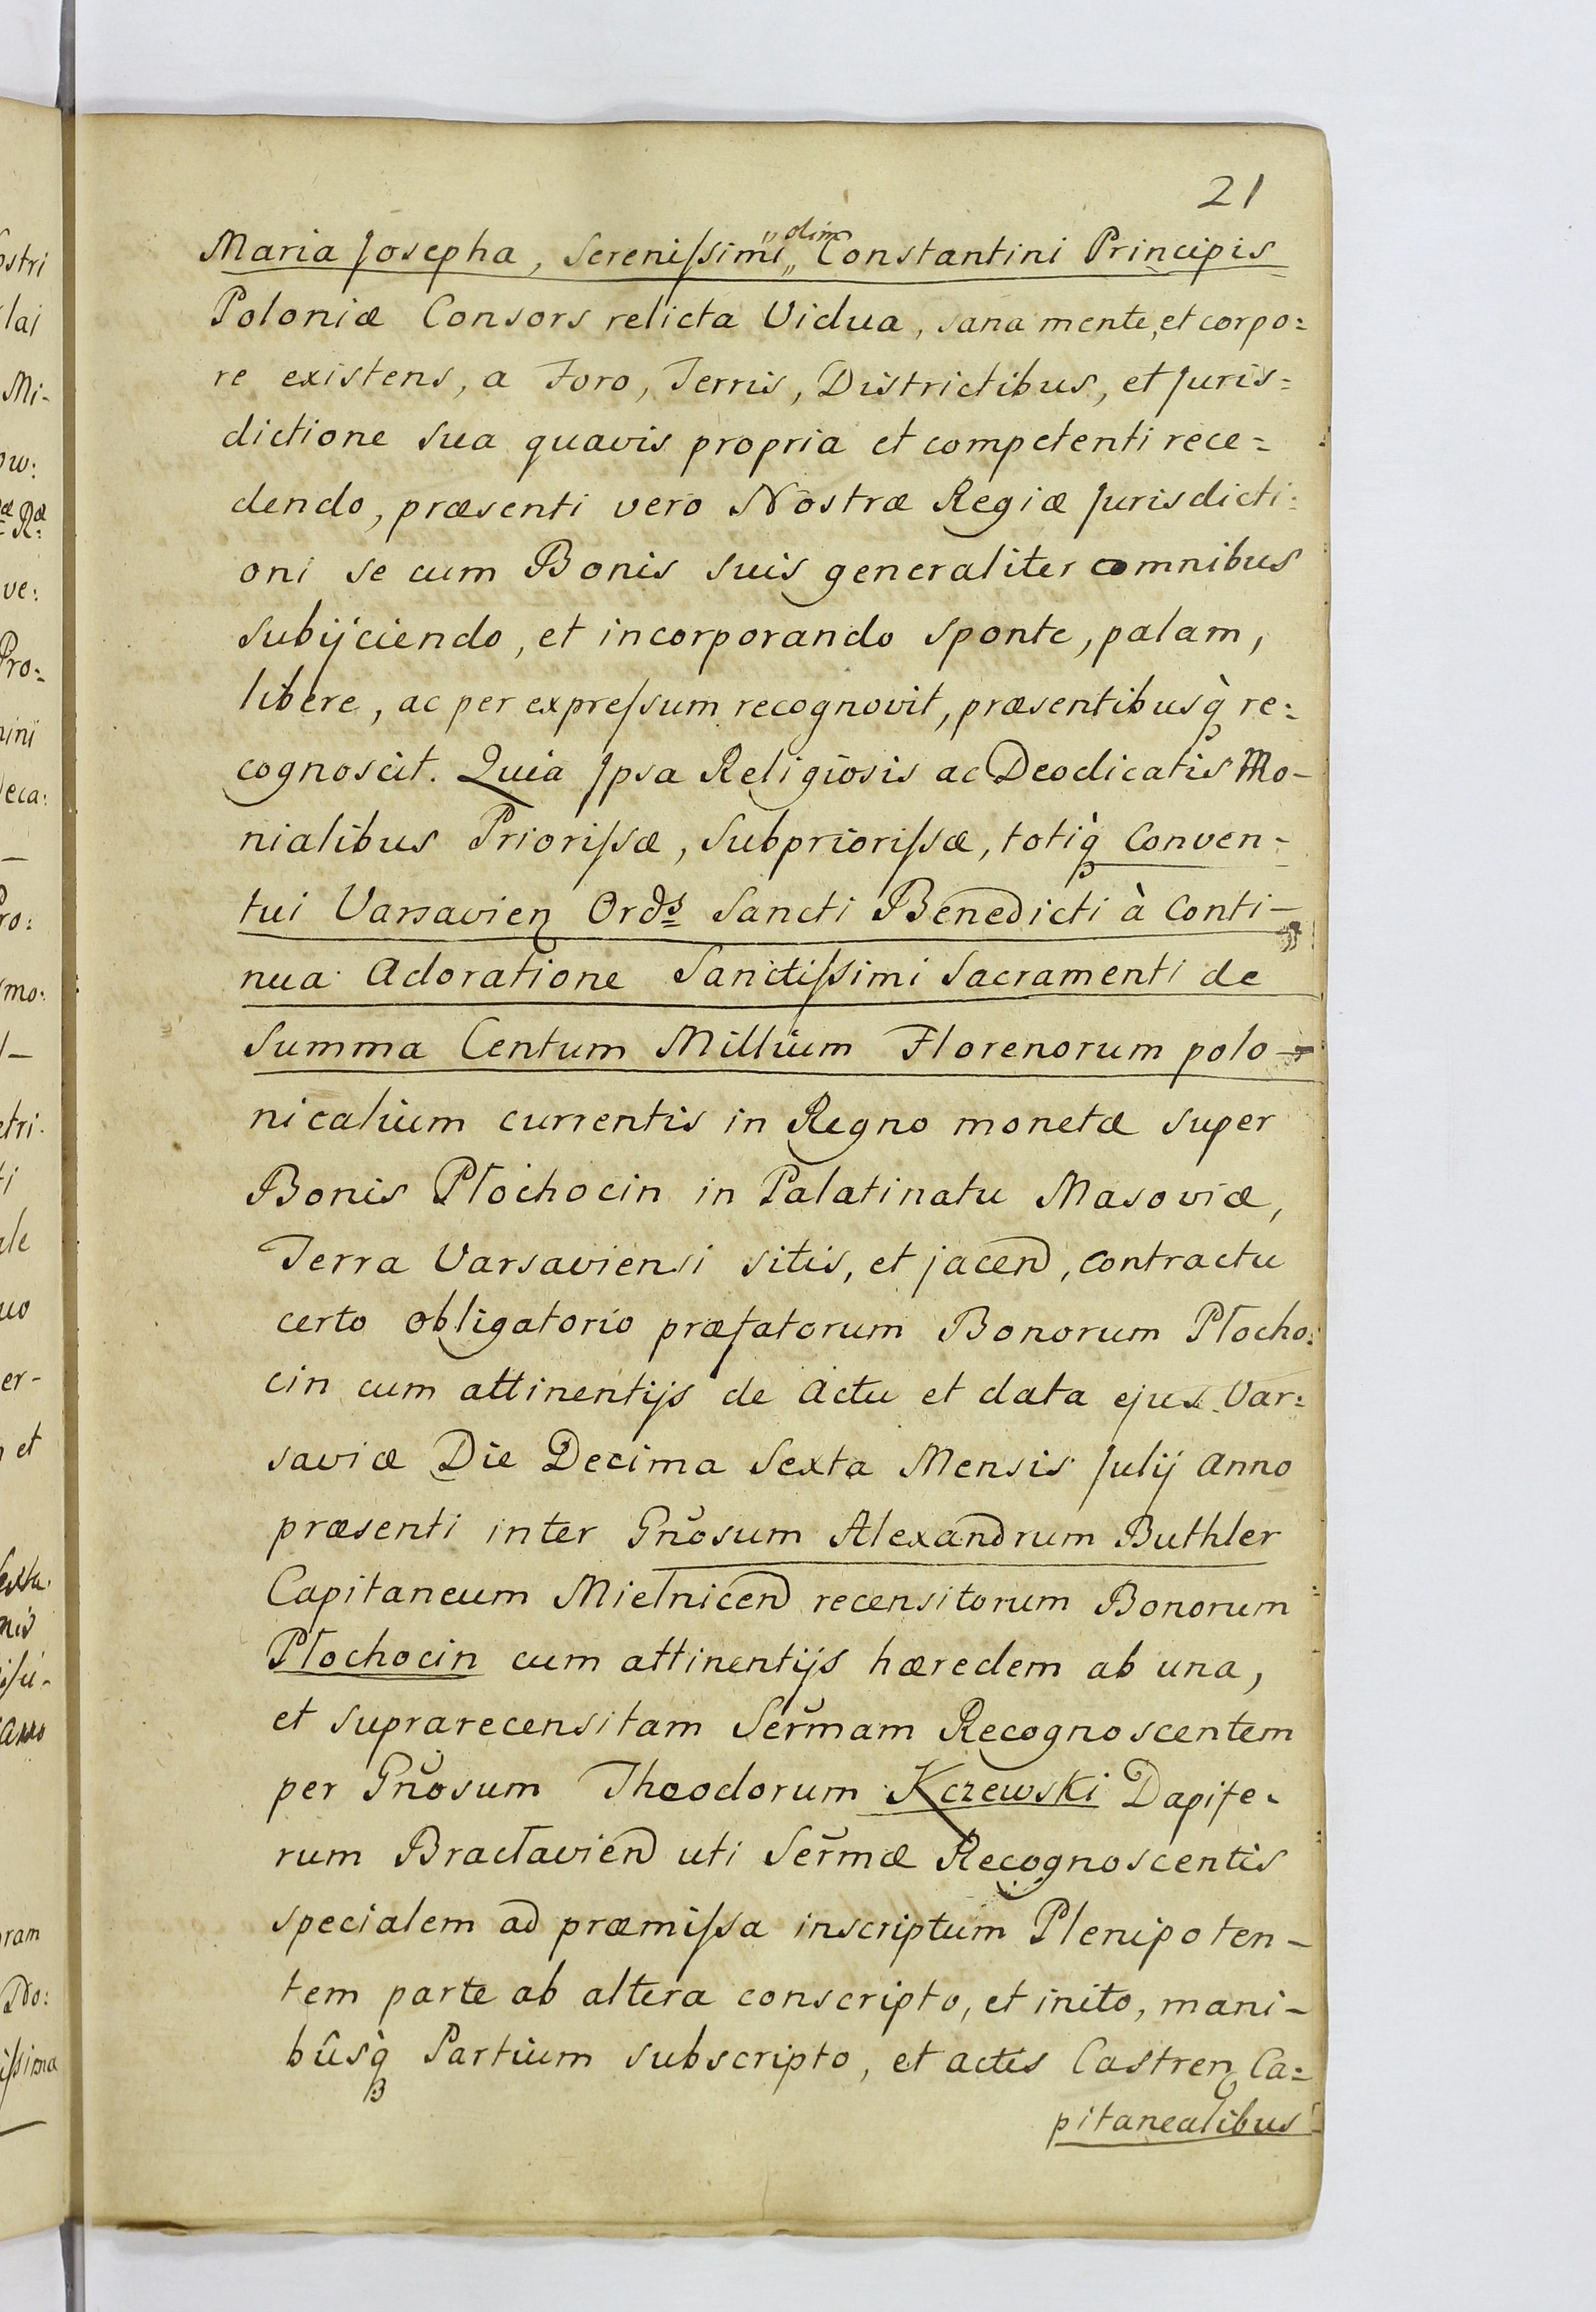 21
Maria Josepha, Sereniſsimi „olim„ Constantini Principis
Poloniæ Consors relicta Vidua, sana mente, et corpo=
re existens, a Foro, Terris, Districtibus, et Juris=
dictione sua quavis propria et competenti rece=
dendo, præsenti vero Nostræ Regiæ Jurisdicti=
oni se cum Bonis suis generaliter omnibus
subijciendo, et incorporando sponte, palam,
libere, ac per expreſsum recognovit, præsentibusq̀ re=
cognoscit. Quia Ipsa Religiosis ac Deodicatis Mo-
nialibus Prioriſsæ, Subprioriſsæ, totiq̀ Conven=
tui Varsavien Ordꝭ Sancti Benedicti à Conti-
nua Adoratione Sanctiſsimi Sacramenti de
Summa Centum Millium Florenorum polo-
nicalium currentis in Regno monetæ super
Bonis Płochocin in Palatinatu Masoviæ,
Terra Varsaviensi sitis, et jacen, contractu
certo obligatorio præfatorum Bonorum Płocho=
cin cum attinentijs de Actu et data ejus Var=
saviæ Die Decima Sexta Mensis Julij Anno
præsenti inter Gñosum Alexandrum Buthler
Capitaneum Mielnicen recensitorum Bonorum
Płochocin cum attinentijs hæredem ab una,
et suprarecensitam Serm̃am Recognoscentem
per Gñosum Theodorum Kczewski Dapife=
rum Bracłavien uti Serm̃æ Recognoscentis
specialem ad præmiſsa inscriptum Plenipoten-
tem parte ab altera conscripto, et inito, mani-
bûsq̀ Partium subscripto, et actis Castren Ca=
pitanealibus